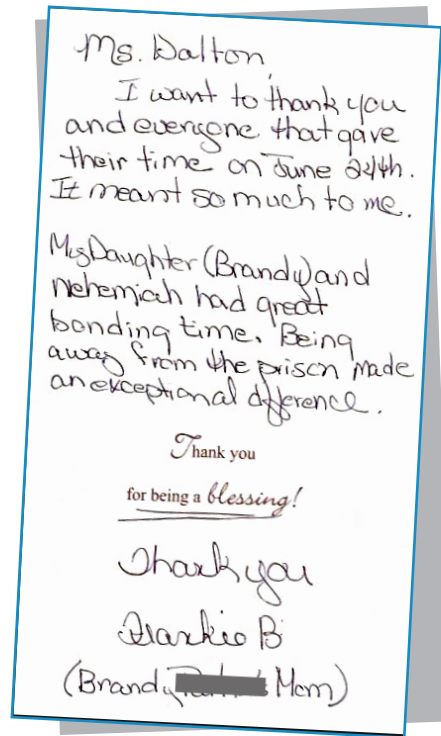 Ms. Dalton,
I want to thank you
and everyone that gave
their time on June 24th.
It meant so much to me.
My Daughter (Brandy) and
Nehemiah had great
bonding time. Being
away from the prison made
an exceptional difference.
Thank you
for being a blessing!
Thank you
B
(Brandy Mom)